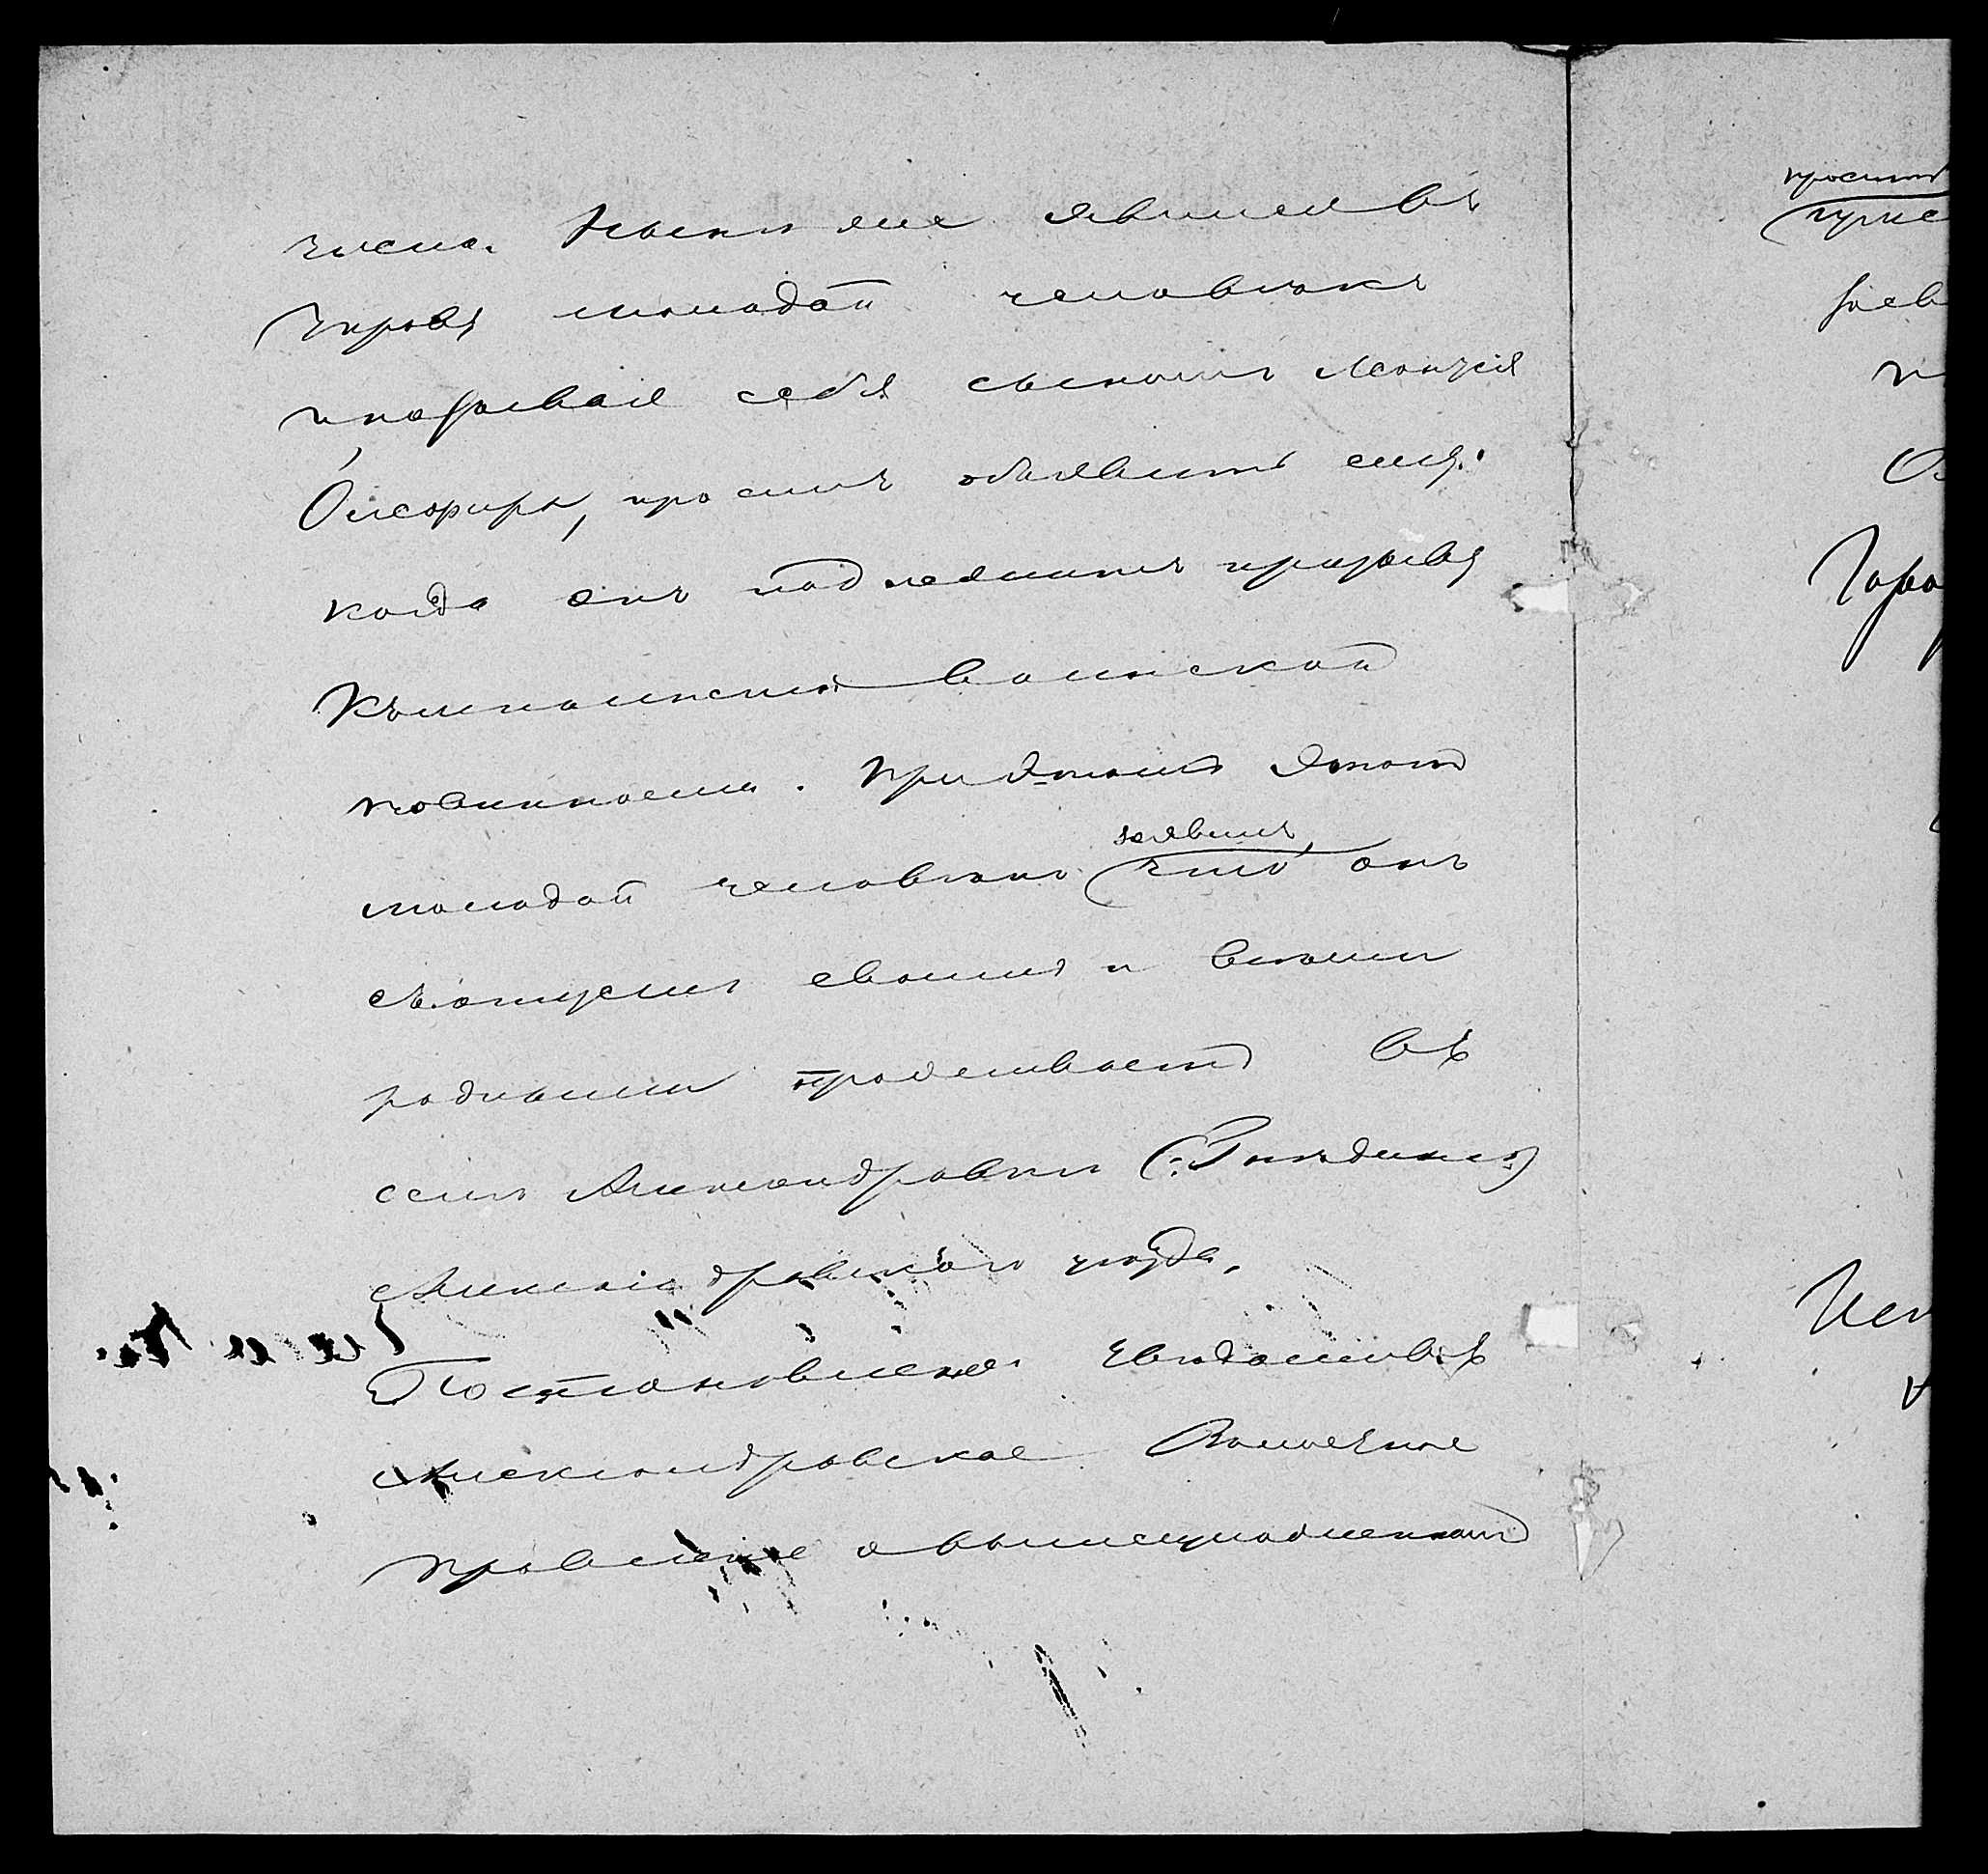 числа. Ныне же явился въ
управу молодой человѣкъ
и называя себя сыномъ
просилъ объявить ему:
когда онъ подлежитъ призыву
къ исполненію воинской
повинности. При этомъ этотъ
молодой человѣкъ заявилъ, что онъ
съ отцемъ своимъ и всѣми
родными проживаетъ въ
селѣ Александровкѣ
Александровского уѣзда.
Постановлено: увѣдомивъ
Александровское Волостное
правленіе о вышеизложенномъ
проситъ